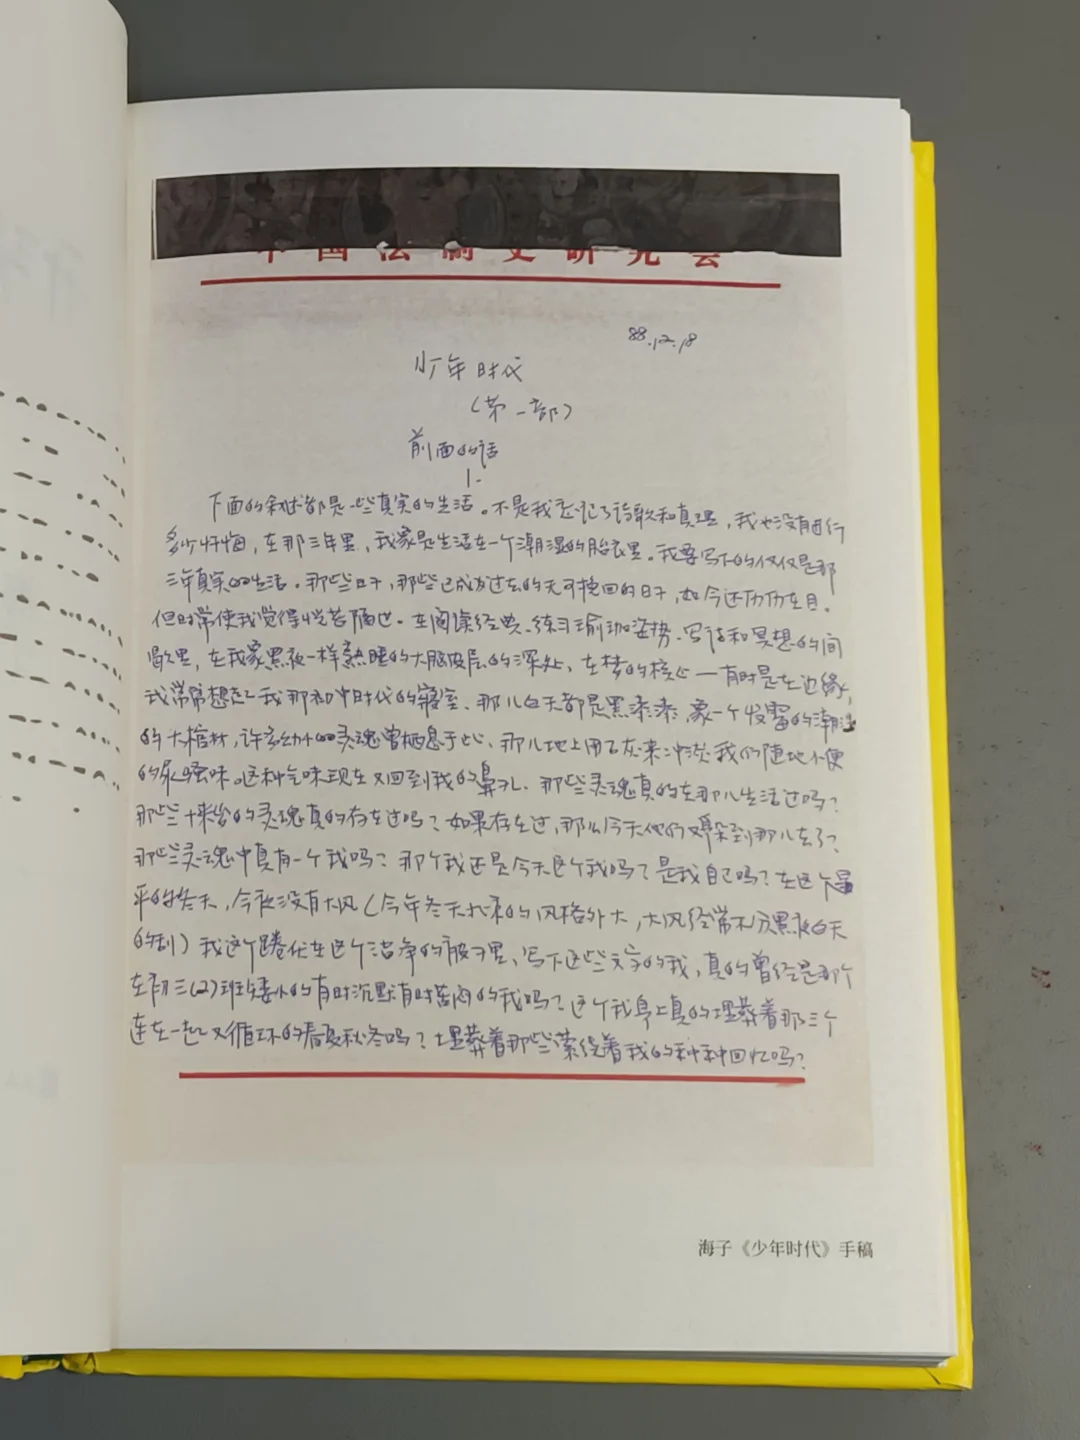 中国法制史研究会
88.12.18
少年时代
（第一部）
前面的话
1.
下面的叙述都是一些真实的生活。不是我忘记了诗歌和真理，我也没有
多少忏悔，在那三年里，我象是生活在一个潮湿的胎衣里。我要写下的仅仅是那
三年真实的生活。那些日子，那些已成为过去的无可挽回的日子，如今还历历在目。
但时常使我觉得恍若隔世。在阅读经典、练习瑜珈姿势、写诗和冥想的间
歇里，在我象黑夜一样熟睡的大脑皮层的深处，在梦的核心——有时是在边缘，
我常常想起我那初中时代的寝室、那儿白天都是黑漆漆，象一个发霉的潮湿
的大棺材，许多幼小的灵魂曾栖息于此、那儿地上用石灰来冲淡我们随地小便
的尿骚味。这种气味现在又回到我的鼻孔、那些灵魂真的在那儿生活过吗？
那些十来岁的灵魂真的存在过吗？如果存在过，那么今天他们又躲到那儿去了？
那些灵魂中真有一个我吗？那个我还是今天这个我吗？是我自己吗？在这个昌
平的冬天，今夜没有大风（今年冬天北京的风格外大，大风经常不分黑夜白天
的刮）我这个蜷伏在这个洁净的被子里、写下这些文字的我，真的曾经是那个
在初三(2)班矮小的有时沉默有时苦闷的我吗？这个我身上真的埋葬着那三个
连在一起又循环的春夏秋冬吗？埋葬着那些萦绕着我的种种回忆吗？
海子《少年时代》手稿